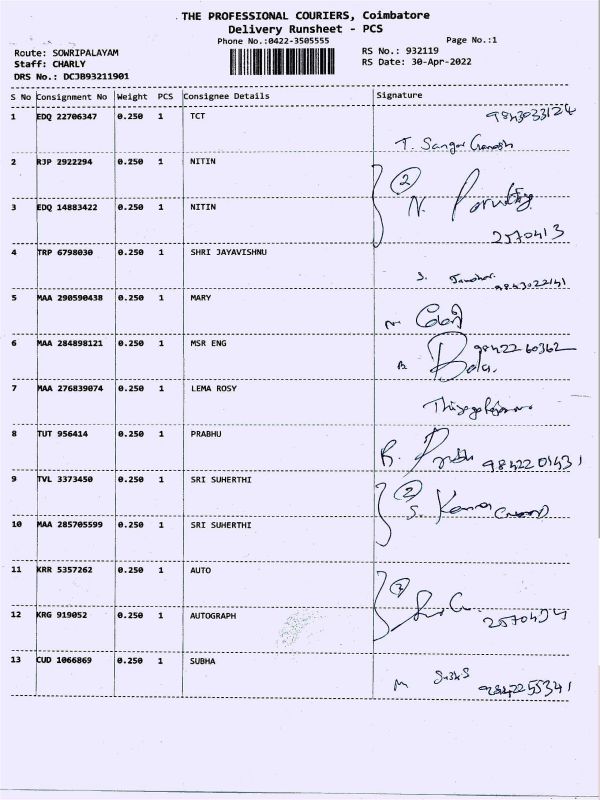 THE PROFESSIONAL COURIERS, Coimbatore
Delivery Runsheet - PCS
Phone No.:0422-3505555
Page No.:1
Route: SOWRIPALAYAM
RS No.: 932119
Staff: CHARLY
RS Date: 30-Apr-2022
DRS No.: DCJB93211901
S No Consignment No Weight PCS Consignee Details Signature
1 EDQ 22706347 0.250 1 TCT 9843033124
T.
2 RJP 2922294 0.250 1 NITIN
2
N.
3 EDQ 14883422 0.250 1 NITIN
2570413
4 TRP 6798030 0.250 1 SHRI JAYAVISHNU
S. 9843022141
5 MAA 290590438 0.250 1 MARY
6 MAA 284898121 0.250 1 MSR ENG 9842260362
Bala.
7 MAA 276839074 0.250 1 LEMA ROSY
8 TUT 956414 0.250 1 PRABHU
9842201431
9 TVL 3373450 0.250 1 SRI SUHERTHI
2
S.
10 MAA 285705599 0.250 1 SRI SUHERTHI
11 KRR 5357262 0.250 1 AUTO
12 KRG 919052 0.250 1 AUTOGRAPH
13 CUD 1066869 0.250 1 SUBHA
M